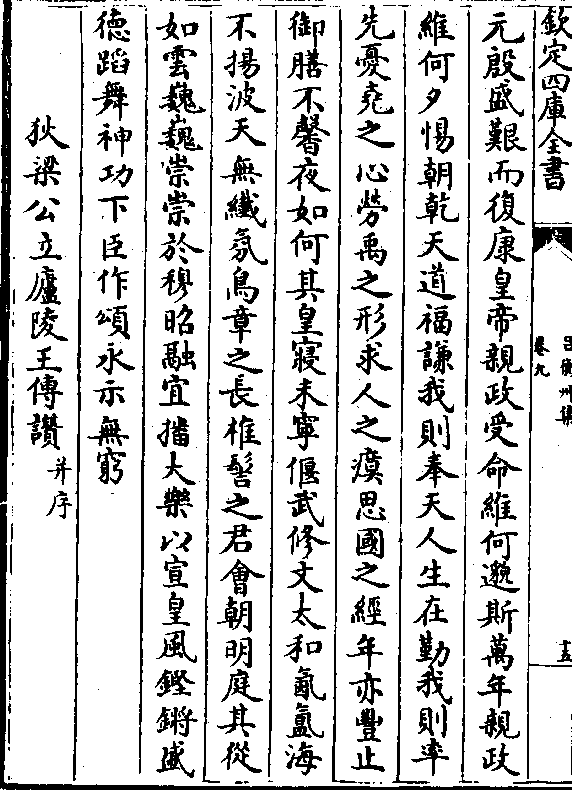 欽定四庫全書
呂衡州集
卷九
十五
元殷盛艱而復康皇帝親政受命維何邈斯萬年親政
維何夕惕朝乾天道福謙我則奉天人生在勤我則率
先憂堯之心勞禹之形求人之瘼思國之經年亦豐止
御膳不馨夜如何其皇寢未寧偃武修文太和氤氳海
不揚波天無纖氛鳥章之長椎髻之君會朝明庭其從
如雲巍巍崇崇於穆昭融宜播大樂以宣皇風鏗鏘盛
德蹈舞神功下臣作頌永示無窮
狄梁公立廬陵王傳讚并序